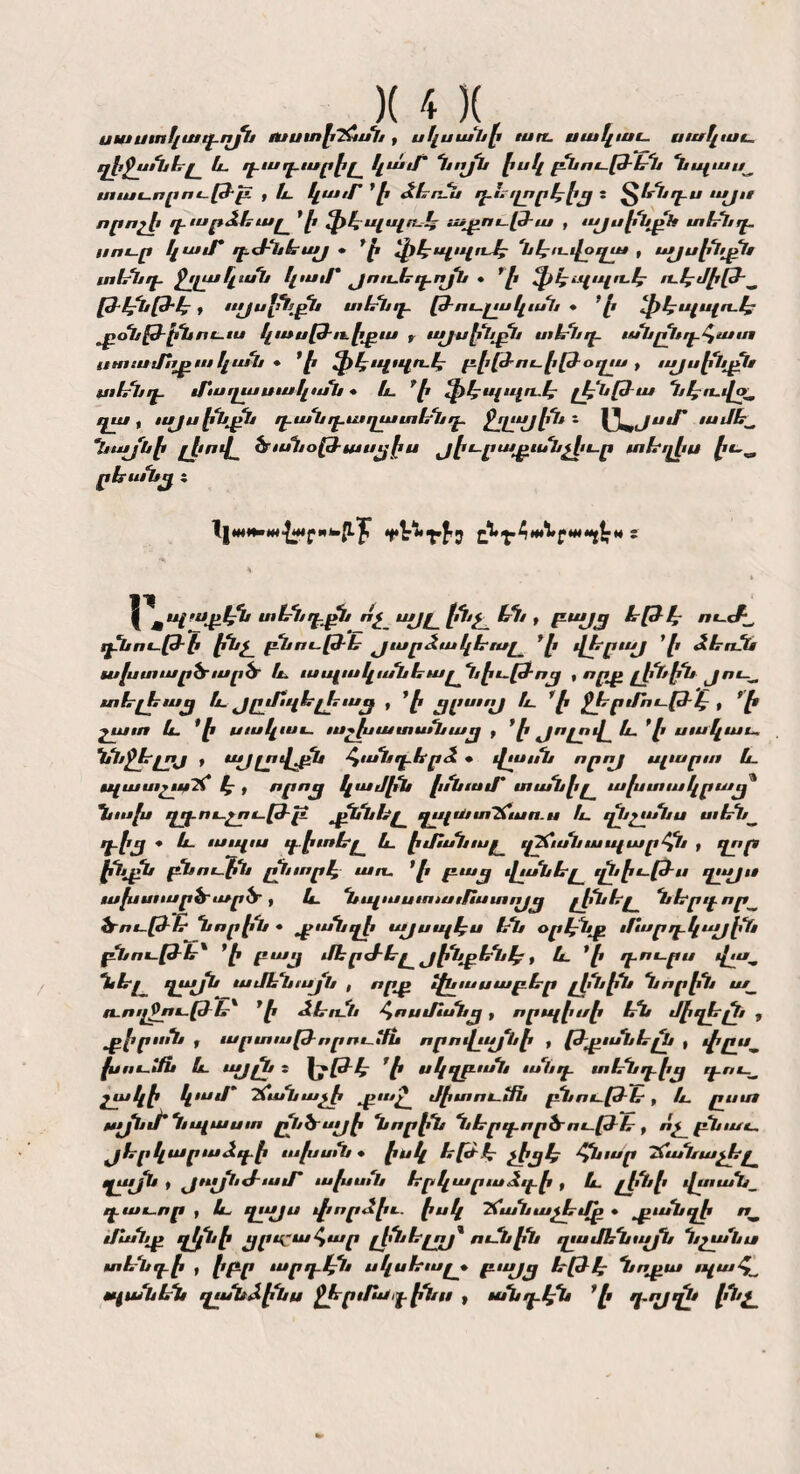 )( 4 )(
սաստկագոյն աստիճան , սկսանի առ սակաւ սակաւ
զիջանել և դադարիլ կամ նոյն իսկ բնութեն նպաս֊
տաւորութբ , և կամ ՚ի ձեռն դեղորէից ։ Տենդս այս
որոշի դարձեալ ՚ի ֆէպպռէ աքութա , այսինքն տենդ
սուր կամ դժնեայ . ՚ի ֆէպպռէ նէռվօզա , այսինքն
տենդ ջղական կամ յռեգոյն . ՚ի ֆէպպռէ ռէմիթ֊
թէնթէ , այսինքն տենդ թուլական . ՚ի ֆէպպռէ
քօնթինուա կասթռիքա , այսինքն տենդ անընդհատ
ստամոքական . ՚ի ֆէպպռէ բիթուիթօզա , այսինքն
տենդ մաղասական . և ՚ի ֆէպպռէ լէնթա նէռվօ֊
զա , այսինքն դանդաղատենդ ջղային ։ Այսմ ամե֊
նայնի լիով ծանօթասցիս յիւրաքանչիւր տեղիս իւ֊
րեանց ։
Կառավարութի տենդից ընդհանրապէս ։
Րպաքէն տենդքն ոչ այլ ինչ են , բայց եթէ ուժ֊
գնութի ինչ բնութե յարձակեալ ՚ի վերայ ՚ի ձեռն
ախտարծարծ և ապականեալ նիւթոց , որք լինին յու֊
տելեաց և յըմպելեաց , ՚ի ցրտոյ և ՚ի ջերմութէ , ՚ի
շատ և ՚ի սակաւ աշխատանաց , ՚ի յոլով և ՚ի սակաւ
ննջելոյ , այլովքն հանդերձ . վասն որոյ պարտ և
պատշաճ է , որոց կամին խնամ տանիլ ախտակրաց՝
նախ զդուշութբ քննել զպատճառս և զնշանս տեն֊
դից . և ապա գիտել և իմանալ զճանապարհն , զոր
ինքն բնուին ընտրէ առ ՚ի բաց վանել զնիւթս զայս
ախտարծարծ , և նպաստամատոյց լինել ներգոր֊
ծութե նորին . քանզի այսպէս են օրէնք մարդկային
բնութե՝ ՚ի բաց մերժել յինքենէ , և ՚ի դուրս վա֊
նել զայն ամենայն , որք վնասաբեր լինին նորին ա֊
ռողջութե՝ ՚ի ձեռն հոսմանց , որպիսի են միզելն ,
քիրտն , արտաթորումն որովայնի , թքանելն , փըս֊
խումն և այլն ։ Եթէ ՚ի սկզբան անդ տենդից դու֊
շակի կամ ճանաչի քաջ միտումն բնութե , և ըստ
այնմ նպաստ ընծայի նորին ներգործութե , ոչ բնաւ
յերկարաձգի ախտն . իսկ եթէ չիցէ հնար ճանաչել
զայն , յայնժամ ախտն երկարաձգի , և լինի վտան֊
գաւոր , և զայս փորձիւ իսկ ճանաչեմք . քանզի ո֊
մանք զկնի ցրտահար լինելոյ՝ ունին զամենայն նշանս
տենդի , իբր արդէն սկսեալ . բայց եթէ նոքա պահ֊
պանեն զանձինս ջերմագինս , անդէն ՚ի դոյզն ինչ